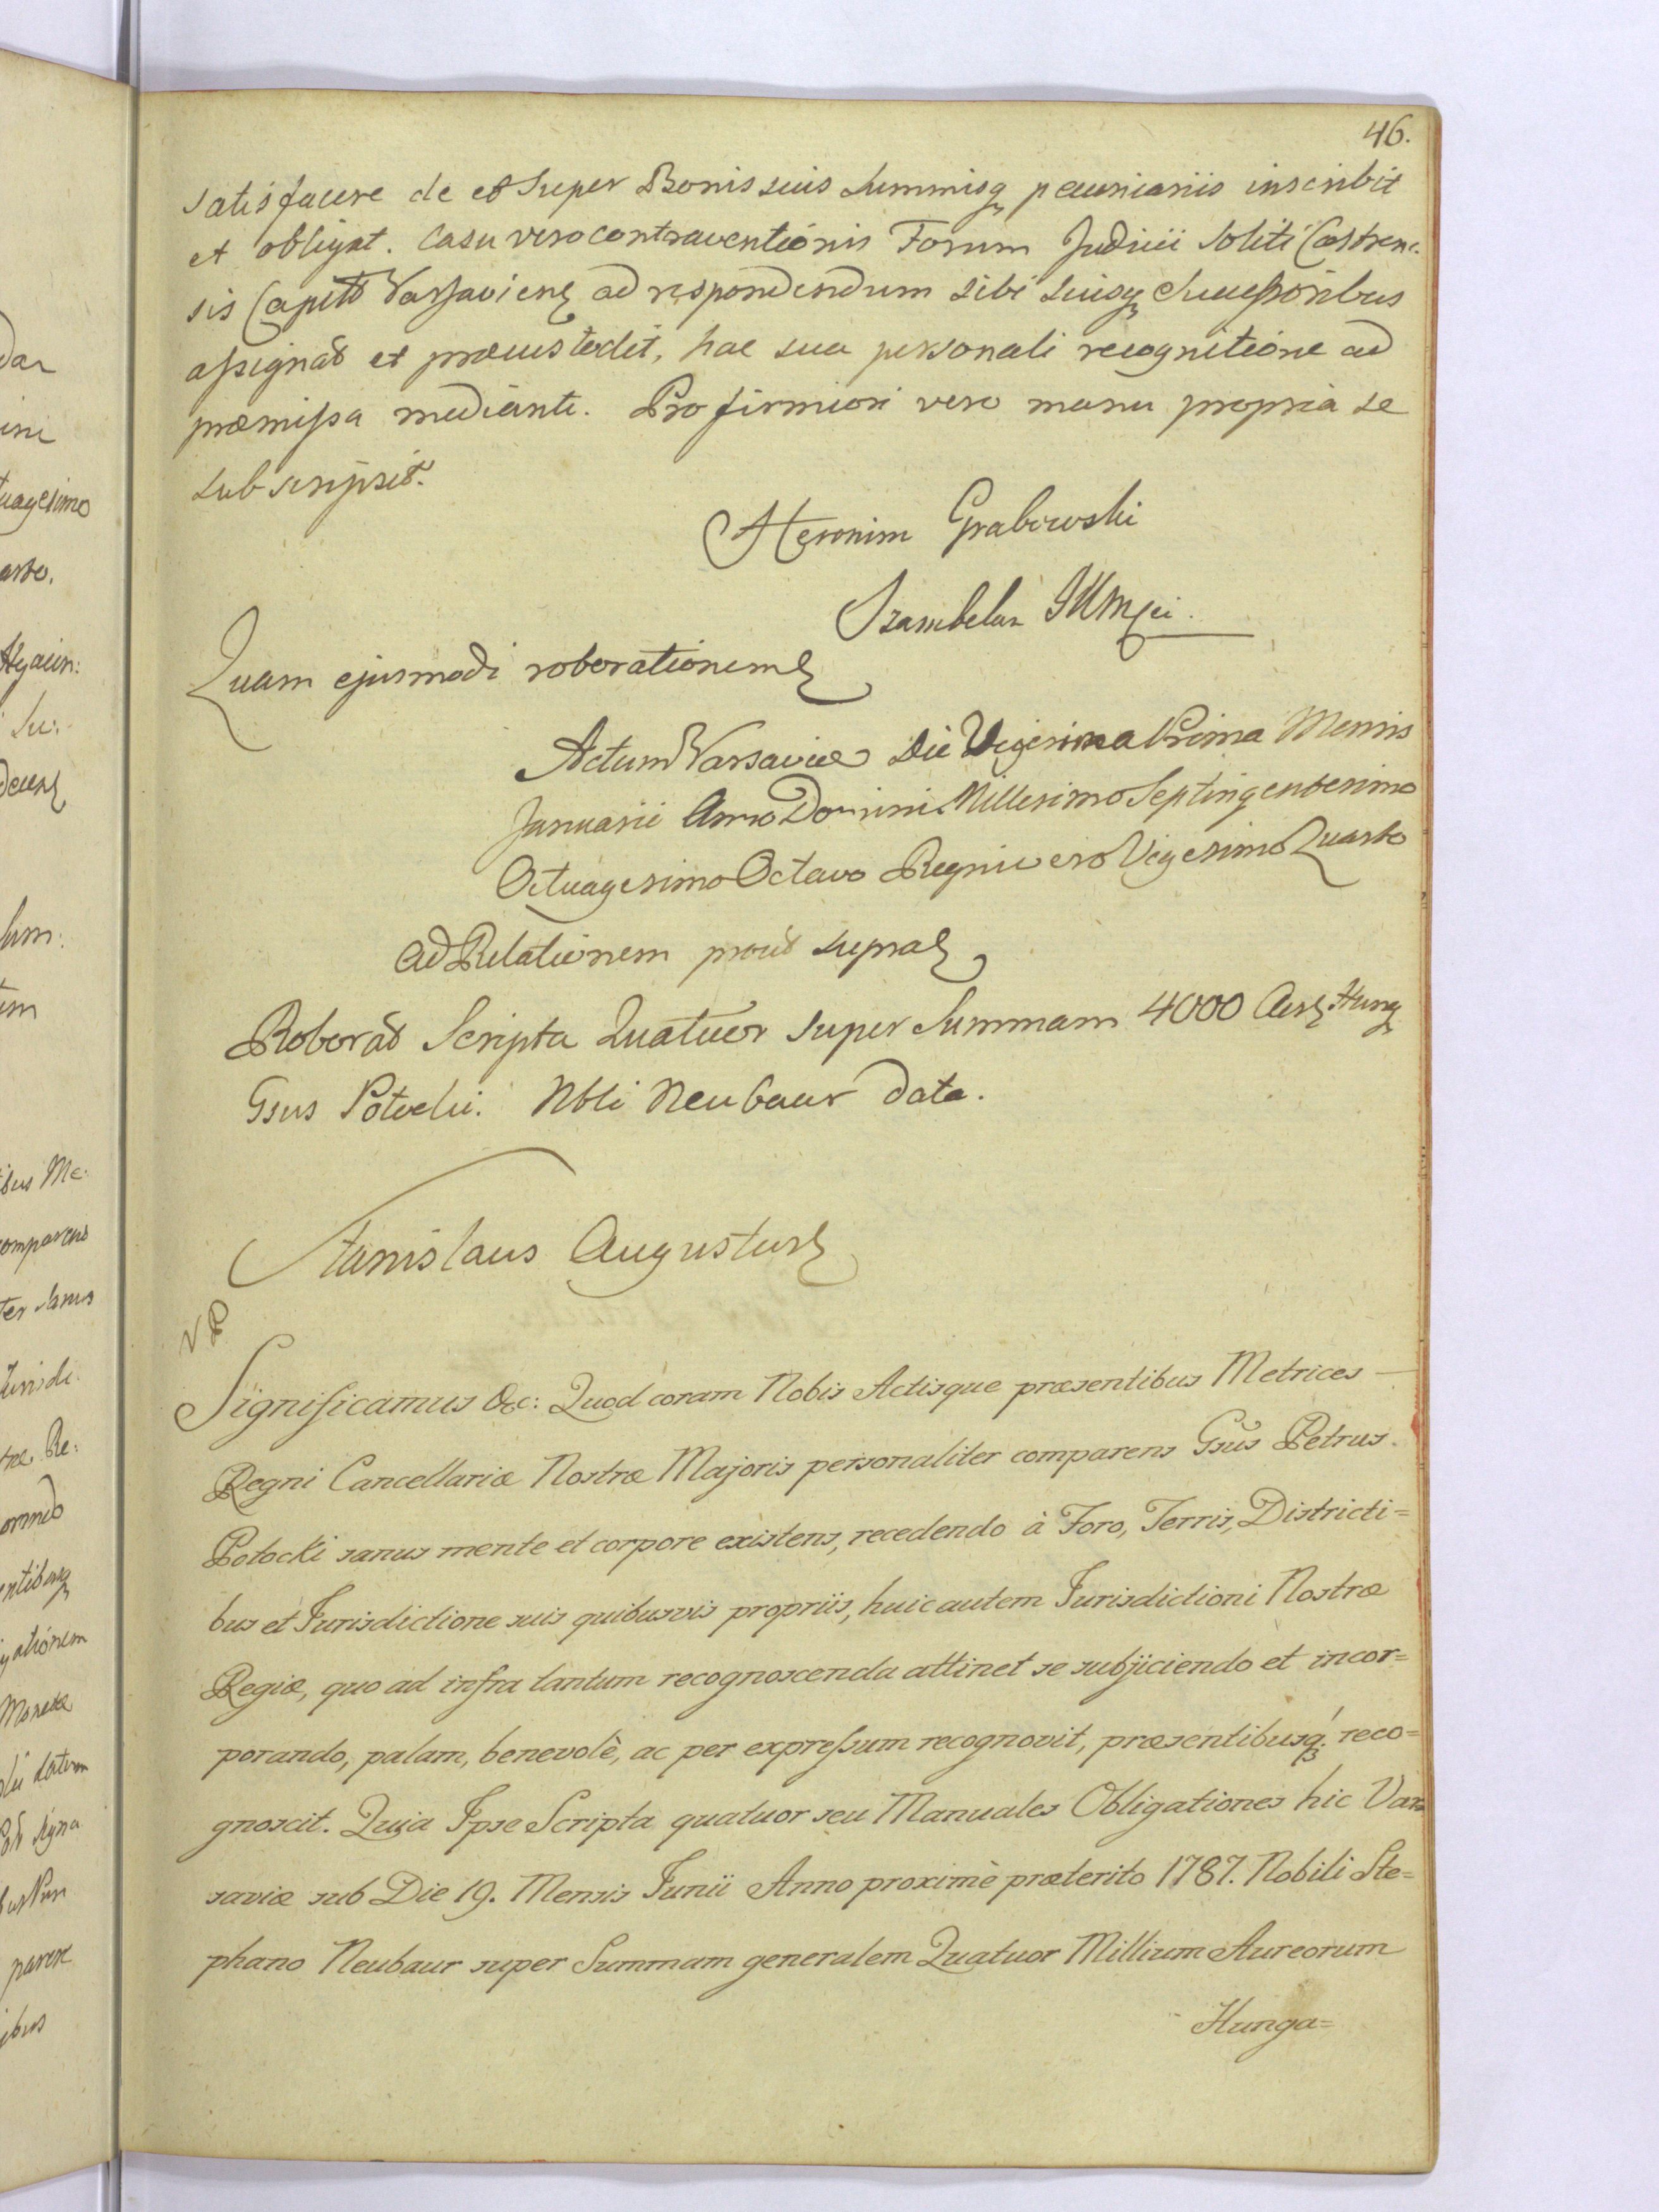 46.
satisfacere de et super Bonis suis Summisq pecuniariis inscribit
et obligat. Casu vero contraventionis Forum Judicii Soliti Castren-
sis Capitt Varsavien ad respondendum sibi suisq Successoribus
assignat et præcustodit, hac sua personali recognitione ad
præmissa mediante. Pro firmiori vero manu propria se
subscripsit.
Heronim Grabowski
Szambelan JKMci.
Quam ejusmodi roborationem
Actum Varsaviæ Die Vigesima Prima Mensis
Januarii Anno Domini Millesimo Septingentesimo
Octuagesimo Octavo Regni vero Vigesimo Quarto
ad Relationem prout supra
Roborat Scripta Quatuor super Summam 4000 Aur Hung
Gsus Potocki. Nbli Neubaur data.
Stanislaus Augustus
Significamus &c: Quod coram Nobis Actisque præsentibus Metrices
Regni Cancellariæ Nostræ Majoris personaliter comparens Gsus Petrus
Potocki sanus mente et corpore existens, recedendo à Foro, Terris, Districti=
bus et Jurisdictione suis quibusvis propriis, huic autem Jurisdictioni Nostræ
Regiæ, quo ad infra tantum recognoscenda attinet se subjiciendo et incor=
porando, palam, benevolè, ac per expressum recognovit, præsentibusq́. reco=
gnoscit. Quia Ipse Scripta quatuor seu Manuales Obligationes hic Var
saviæ sub Die 19. Mensis Junii Anno proximè præterito 1787. Nobili Ste=
phano Neubaur super Summam generalem Quatuor Millium Aureorum
Hunga=